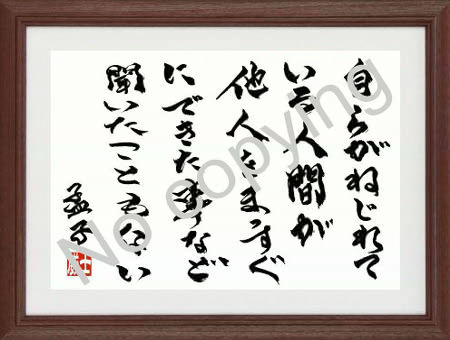 自らがねじれて
いる人間が
他人をまっすぐ
にできた事など
聞いたこともない
孟子
No copying